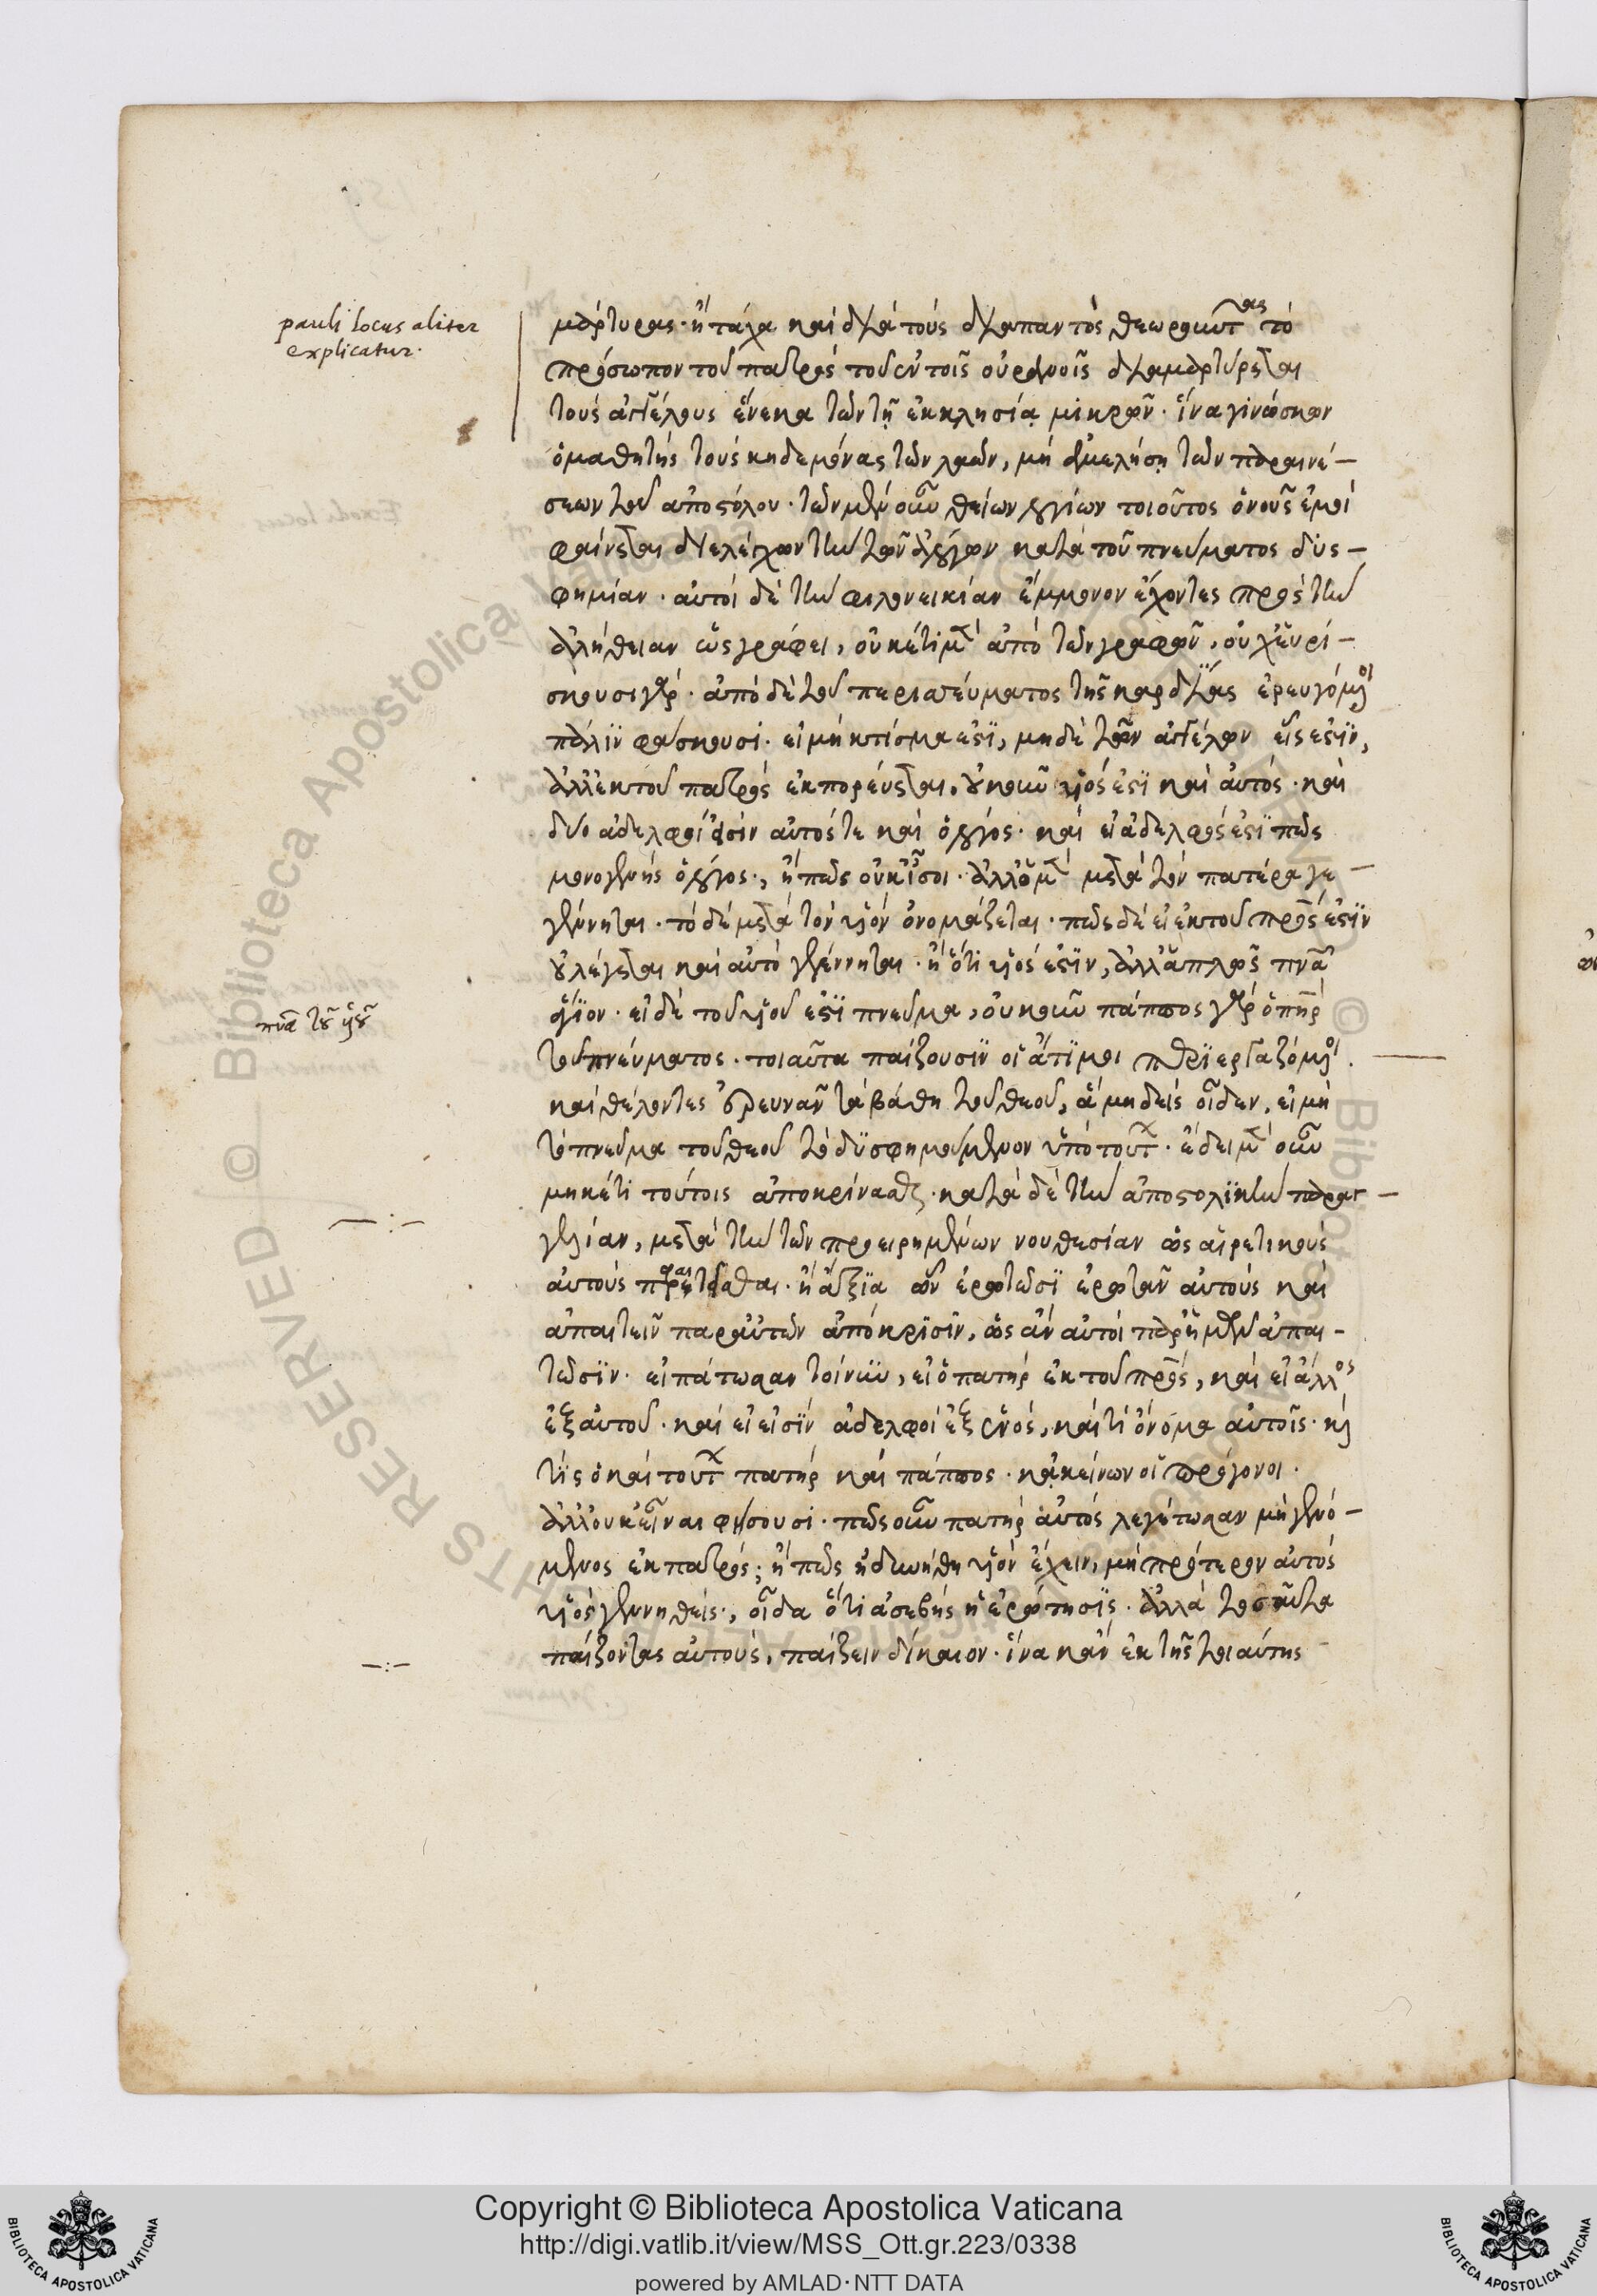 pauli locus aliter
explicatur.
μάρτυρας· ἢ τάχα καὶ διὰ τοὺς διαπαντὸς θεωροῦντας τὸ
πρόσωπον τοῦ πατρὸς τοῦ ἐν τοῖς οὐρανοῖς διαμαρτύρεται
τοὺς ἀγγέλους ἕνεκα τῶν τῇ ἐκκλησίᾳ μικρῶν· ἵνα γινώσκων
ὁ μαθητὴς τοὺς κηδεμόνας τῶν λαῶν, μὴ ἀμελήσῃ τῶν παραινέ-
σεων τοῦ ἀποστόλου· τῶν μὲν οὖν θείων λογίων τοιοῦτος ὁ νοῦς ἐμοὶ
φαίνεται διελέγχων τὴν τῶν ἀλόγων κατὰ τοῦ πνεύματος δυς-
φημίαν· αὐτοὶ δὲ τὴν φιλονεικίαν ἔμμονον ἔχοντες πρὸς τὴν
ἀλήθειαν ὡς γράφει, οὐκέτι μὲν ἀπὸ τῶν γραφῶν, οὐχ εὑρί-
σκουσι γάρ· ἀπὸ δὲ τοῦ περισσεύματος τῆς καρδίας ἐρευγόμενοι
πάλιν φάσκουσι· εἰ μὴ κτίσμα ἐστὶ, μηδὲ τῶν ἀγγέλων εἷς ἐστὶν,
ἀλλ' ἐκ τοῦ πατρὸς ἐκπορεύεται. οὐκοῦν υἱός ἐστι καὶ αὐτὸς· καὶ
δύο ἀδελφοί εἰσιν αὐτός τε καὶ ὁ λόγος· καὶ εἰ ἀδελφός ἐστι πῶς
μονογενὴς ὁ λόγος., ἢ πῶς οὐκ ἴσοι· ἀλλ' ὁ μὲν μετὰ τὸν πατέρα γε-
γέννηται· τὸ δὲ μετὰ τὸν υἱὸν ὀνομάζεται· πῶς δὲ εἰ ἐκ τοῦ πρς ἐστὶν
οὐ λέγεται καὶ αὐτὸ γεγέννηται· ἢ ὅτι υἱός ἐστιν, ἀλλ' ἁπλῶς πνα
ἅγιον· εἰ δὲ τοῦ υἱοῦ ἐστὶ πνεῦμα, οὐκοῦν πάππος γὰρ ὁ πηρ
πνα τοῦ υἱοῦ
τοῦ πνεύματος· τοιαῦτα παίζουσιν οἱ ἄτιμοι περιεργαζόμενοι
καὶ θέλοντες ἐρευνᾶν τὰ βάθη τοῦ θεοῦ, ἃ μηδεὶς οἶδεν, εἰ μὴ
τὸ πνεῦμα τοῦ θεοῦ τὸ δυσφημούμενον ὑπὸ τούτων· ἔδει μὲν οὖν
μηκέτι τούτοις ἀποκρίνασθαι· κατὰ δὲ τὴν ἀποστολικὴν παραγ-
γελίαν, μετὰ τὴν τῶν προειρημένων νουθεσίαν ὡς αἱρετικοὺς
αὐτοὺς παραιτεῖσθαι· ἢ ἄξια ὧν ἐρωτῶσι ἐρωτᾶν αὐτοὺς καὶ
ἀπαιτεῖν παρ' αὐτῶν ἀπόκρισιν, ὡς ἂν αὐτοὶ παρ' ἡμῶν ἀπαι-
τῶσιν· εἰπάτωσαν τοίνυν, εἰ ὁ πατὴρ ἐκ τοῦ πρς, καὶ εἰ ἄλλος
ἐξ αὐτοῦ· καὶ εἰ εἰσὶν ἀδελφοὶ ἐξ ἑνὸς, καὶ τί ὄνομα αὐτοῖς· καὶ
τίς ὁ καὶ τούτων πατὴρ καὶ πάππος· κἀκείνων οἱ πρόγονοι·
ἀλλ' οὐκ εἶναι φήσουσι· πῶς οὖν πατὴρ αὐτὸς λεγέτωσαν μὴ γενό-
μενος ἐκ πατρός; ἢ πῶς ἠδυνήθη υἱὸν ἔχειν, μὴ πρότερον αὐτὸς
υἱὸς γεννηθείς., οἶδα ὅτι ἀσεβὴς ἡ ἐρώτησις· ἀλλὰ τοσαῦτα
παίζοντας αὐτοὺς, παίζειν δίκαιον· ἵνα κἂν ἐκ τῆς τοιαύτης
Copyright © Biblioteca Apostolica Vaticana
http://digi.vatlib.it/view/MSS_Ott.gr.223/0338
powered by AMLAD·NTT DATA